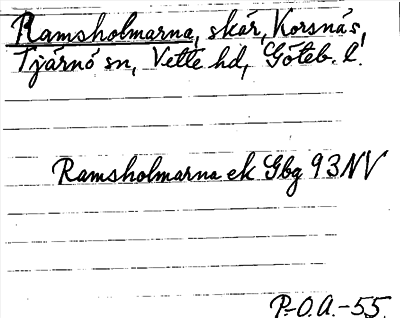 Ramsholmarna, skär, Korsnäs,
Tjärnö sn, Vette hd, Göteb. l.
Ramsholmarna ek Gbg 93NV
P.-O.A.-55.